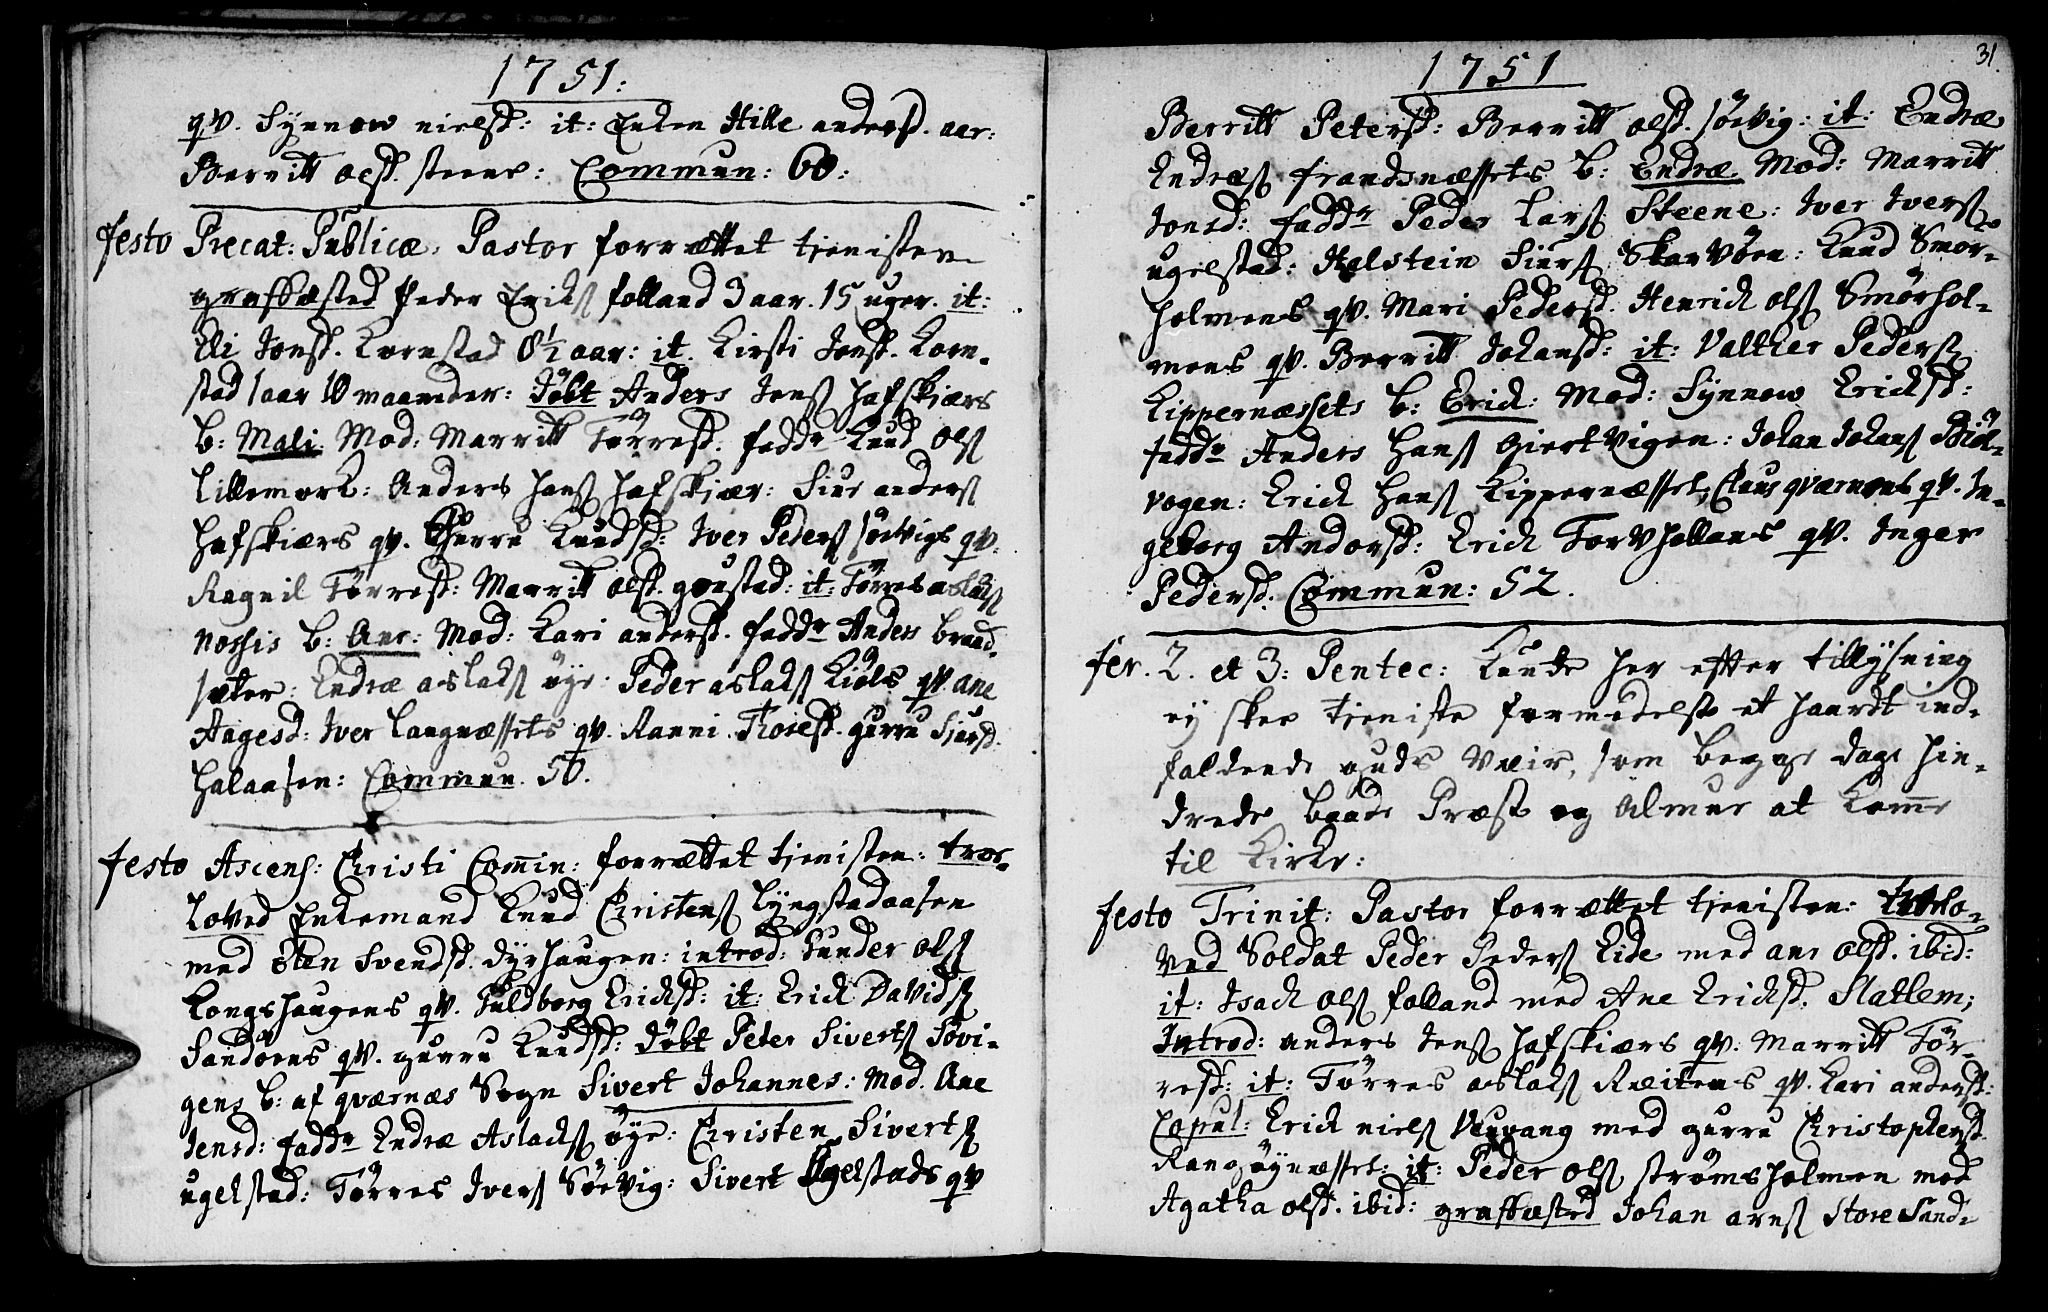 1751:
qv. Synnow nielsd: it: Enken Hille andersd. aar:
Berritt olsd. steene: Commun: 60:
festo Precat: Publicæ. Pastor forrættet tienisten
graffæsted Peder Erichs folland 3 aar. 15 uger. it:
Eli Jonsd. Kornstad 8½ aar: it. Kirsti Jonsd. Korn-
stad 1 aar 10 maaneder: Döbt Anders Jens hafskiærs
b: Mali. Mod: Marritt Törresd. faddr Knud Ols
Lillemork: Anders Hans hafskiær: Siur anders
hafskiærs qv. Gurru Knudsd: Iver Peders sörvigs qv.
Ragnil Törresd: Marritt olsd. goustad: it: Törres aslaks
b: Ane: Mod: Kari andersd. faddr Anders brand-
sæter: Endræ aslaks öye: Peder aslaks Kiöls qv. ane
Aagesd: Iver Langnæssets qv. Ranni Thoresd. gurru Siursd.
halaasen: Commun. 50.
festo Ascens: Christi Comin: forrættet tienisten: troe-
loved Enkemand Knud Christens Lyngstadaasen
med Sten Svendsd. dyrhaugen: introd: Gunder ols
Longshaugens qv. Guldborg Erichsd: it: Erich Davids
Sandöens qv. gurru Knudsd: Döbt Peter Siverts Sövi-
gens b: af qværnæs Sogn Sivert Johannes: Mod. Ane
Jensd: faddr Endræ Aslachs öye: Christen Siverts
ugelstad: Törres Ivers Sörvig: Sivert Ugelstads qv
31.
1751
Berritt Petersd: Berritt olsd. sörvig: it: Endræ
Endræs frandsnæssets b: Endræ Mod: Marritt
Jonsd: faddr Peder Lars Steene: Iver Ivers
ugelstad: Halstein Siurs Skarvöen: Knud Smör-
holmens qv. Mari Pedersd. Henrich ols Smörhol-
mens qv. Berritt Johansd: it: Valther Peders
Kippernæssets b: Erich: Mod: Synnow Erichsd:
faddr Anders Hans giertvigen: Johan Johans
vogen: Erich Hans Kippernæsset, Claus qværnens qv. In-
geborg Andorsd: Erich Torvhollans qv. Inger
Pedersd. Commun: 52.
fer. 2. et 3: Pentec: Kunde her efter tillysning
ey skee tieniste formedelst et haardt ind-
faldende guds Veir, som begge dage hin-
drede baade Præst og Almue at Kome
til Kirke:
festo Trinit: Pastor forrættet tienisten: trolo-
ved Soldat Peder Peders Eide med ane olsd. ibid:
it: Isach ols folland med Ane Erichsd. Slatlem;
Introd: anders Jens hafskiærs qv: Marritt Tör-
resd: it: Törres aslaks Ræitens qv. Kari andersd:
Copul: Erich niels Veuvang med gurru Christophersd.
Rangöynæsset: it: Peder ols strömsholmen med
Agatha olsd. ibid: graffæsted Johan arns Store Sand-